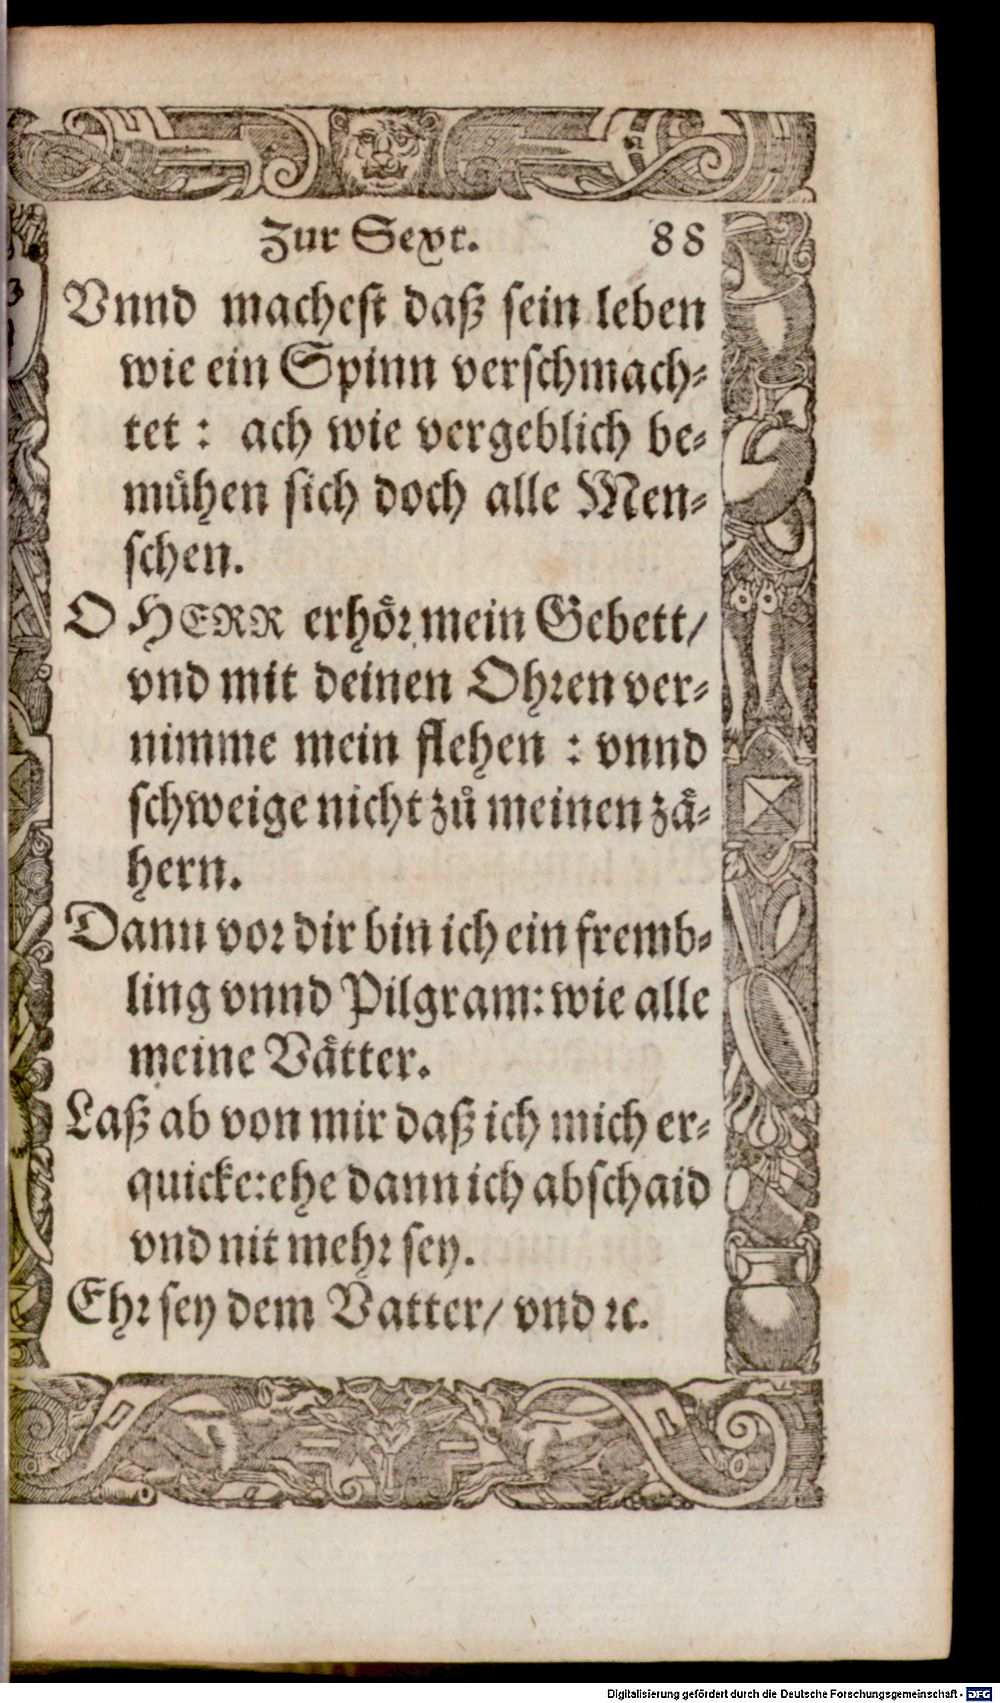 Zur Sext. 88
Vnnd machest daß sein leben
wie ein Spinn verschmach-
tet : ach wie vergeblich be-
mühen sich doch alle Men-
schen.
O HERR erhör mein Gebett/
vnd mit deinen Ohren ver-
nimme mein flehen : vnnd
schweige nicht zuͦ meinen zä-
hern.
Dann vor dir bin ich ein fremb-
ling vnnd Pilgram: wie alle
meine Vätter.
Laß ab von mir daß ich mich er-
quicke: ehe dann ich abschaid
vnd nit mehr sey.
Ehr sey dem Vatter/ vnd ꝛc.
Digitalisierung gefördert durch die Deutsche Forschungsgemeinschaft - DFG